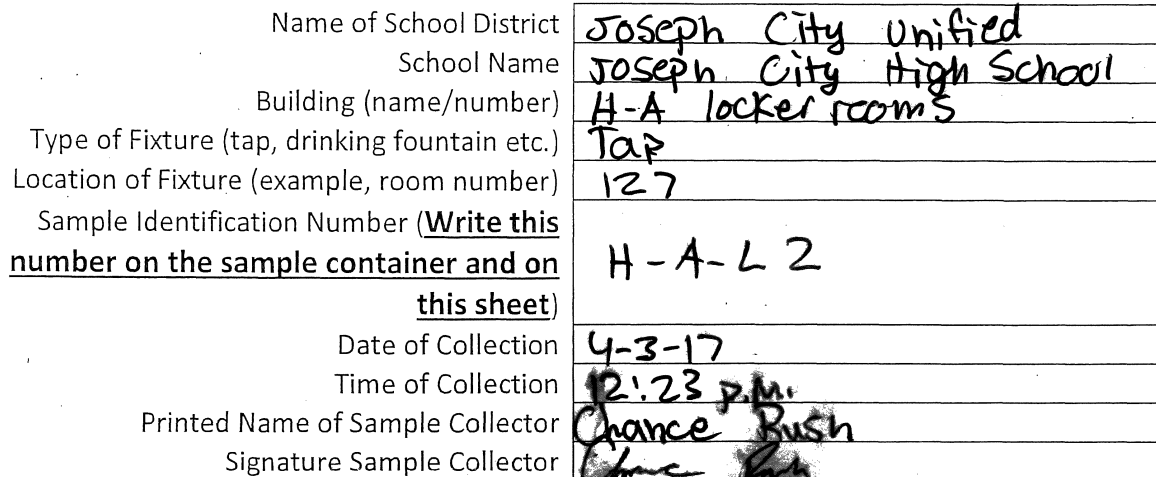 Name of School District Joseph City Unified
School Name Joseph City High School
Building (name/number) H-A locker rooms
Type of Fixture (tap, drinking fountain etc.) Tap
Location of Fixture (example, room number) 127
Sample Identification Number (Write this
number on the sample container and on H-A-L 2
this sheet)
Date of Collection 4-3-17
Time of Collection 12:23 p.m.
Printed Name of Sample Collector Chance Rush
Signature Sample Collector Chance Rush